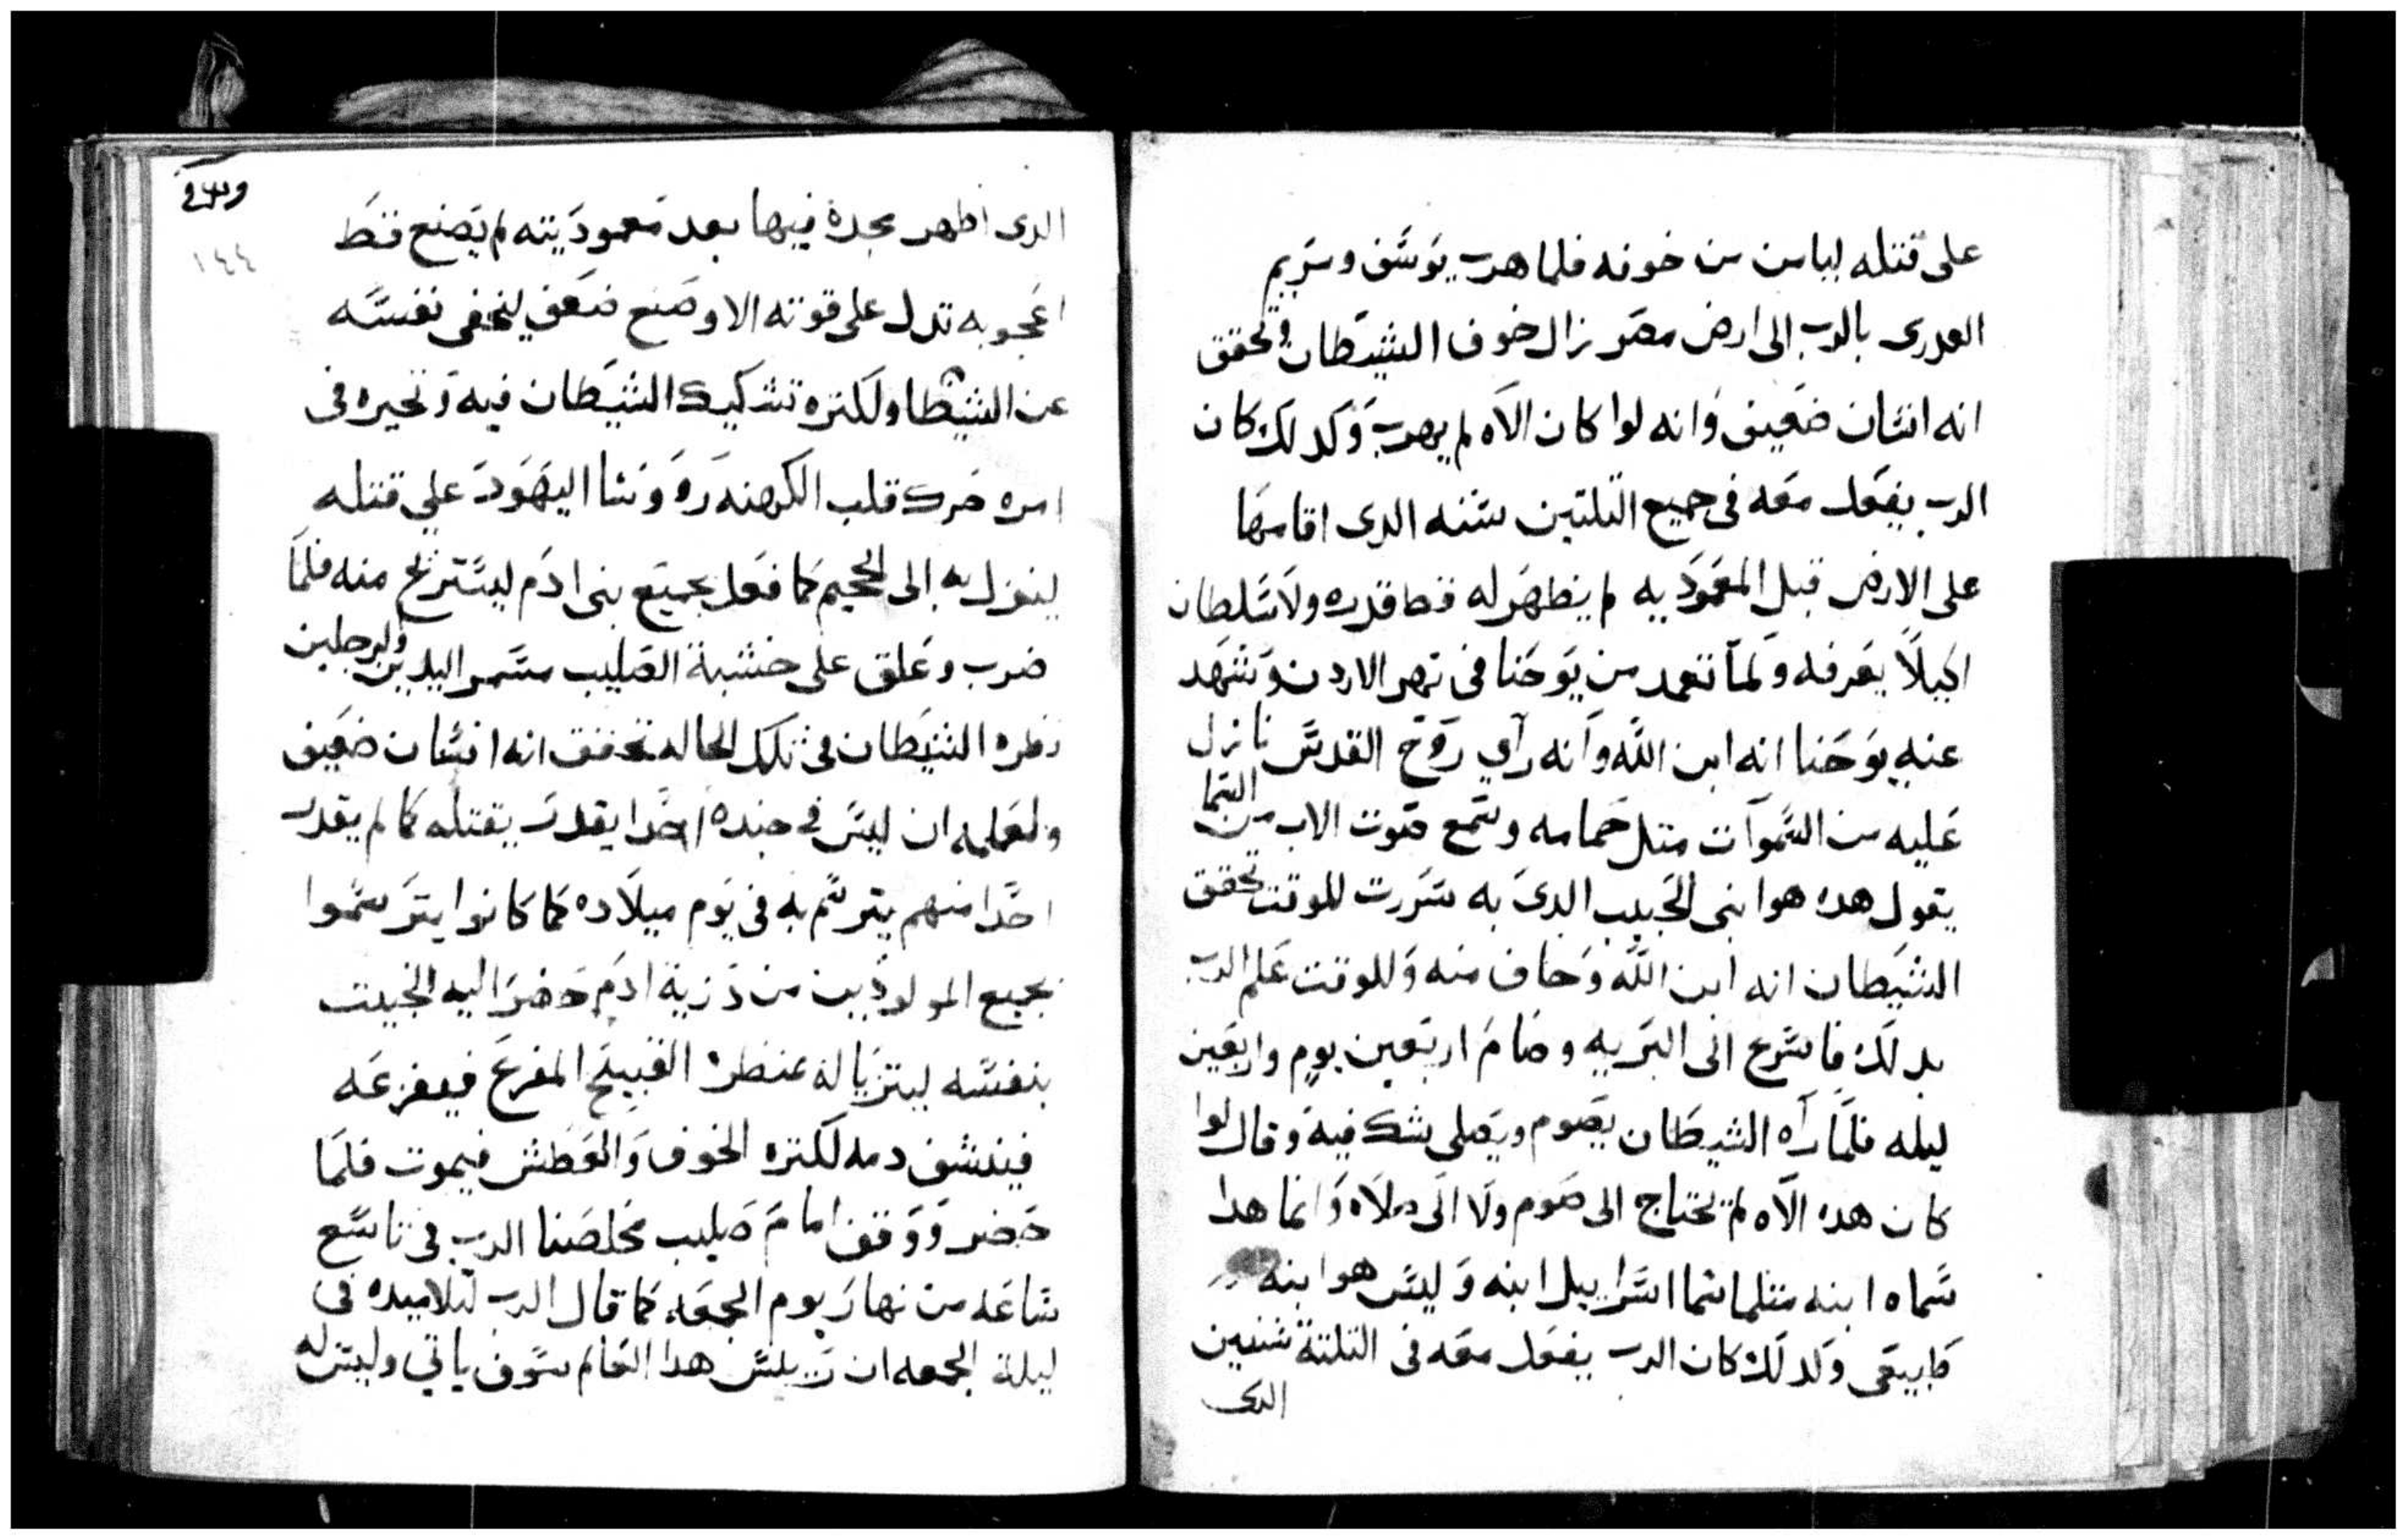 على قتله لياس من خوفه فلما هرب يوسف ومريم
العدرى بالرب الى ارض مصر زال خوف الشيطان وتحقق
انه انسان ضعيف وانه لوا كان الاه لم يهرب وكدلك كان
الرب يفعل معه فى جميع التلتين سنه الدى اقامها
على الارض قبل المعموديه لم يظهر له قط قدره ولا سلطان
اكيلا يعرفه ولما تعمد من يوحنا فى نهر الاردن وشهد
عنه يوحنا انه ابن الله وانه رآي روح القدس نازل
عليه من السموات متل حمامه وسمع صوت الاب من السما
يقول هدا هو ابنى الحبيب الدى به سررت للوقت تحقق
الشيطان انه ابن الله وخاف منه وللوقت علم الرب
بدلك فاسرع الى البريه وصام اربعين يوم واربعين
ليله فلما رآه الشيطان يصوم ويصلى شك فيه وقال لوا
كان هدا الاه لم يحتاج الى صوم ولا الى صلاه وانما هدا
سماه ابنه متلما سما اسراييل ابنه وليس هو ابنه
طبيعى ولدلك كان الرب يفعل معه فى التلتة سنين
الدى
١٤٤
الدى اظهر مجده فيها بعد معموديته لم يصنع قط
اعجوبه تدل على قوته الا وصنع ضعف ليخفى نفسه
عن الشيطان ولكتره تشكيك الشيطان فيه وتحيره فى
امره حرك قلب الكهنه وروسا اليهود علي قتله
لينزل به الى الجحيم كما فعل بجميع بنى ادم ليستريح منه فلما
ضرب وعلق على خشبة الصليب مسمر اليدين والرجلين
نظره الشيطان فى تلك الحاله تحقق انه انسان ضعيف
ولعلمه ان ليس فى جنده احدا يقدر يقتله كما لم يقدر
احدا منهم يترسم به فى يوم ميلاده كما كانوا يترسموا
بجميع المولودين من درية ادم حضر اليه الخبيت
بنفسه ليتزيا له بمنظره القبيح المفزع فيفزعه
فينشف دمه لكتره الخوف والعطش فيموت فلما
حضر ووقف امام صليب مخلصنا الرب فى تاسع
ساعه من نهار يوم الجمعه كما قال الرب لتلاميده فى
ليلة الجمعه ان رييس هدا العالم سوف ياتي وليس له